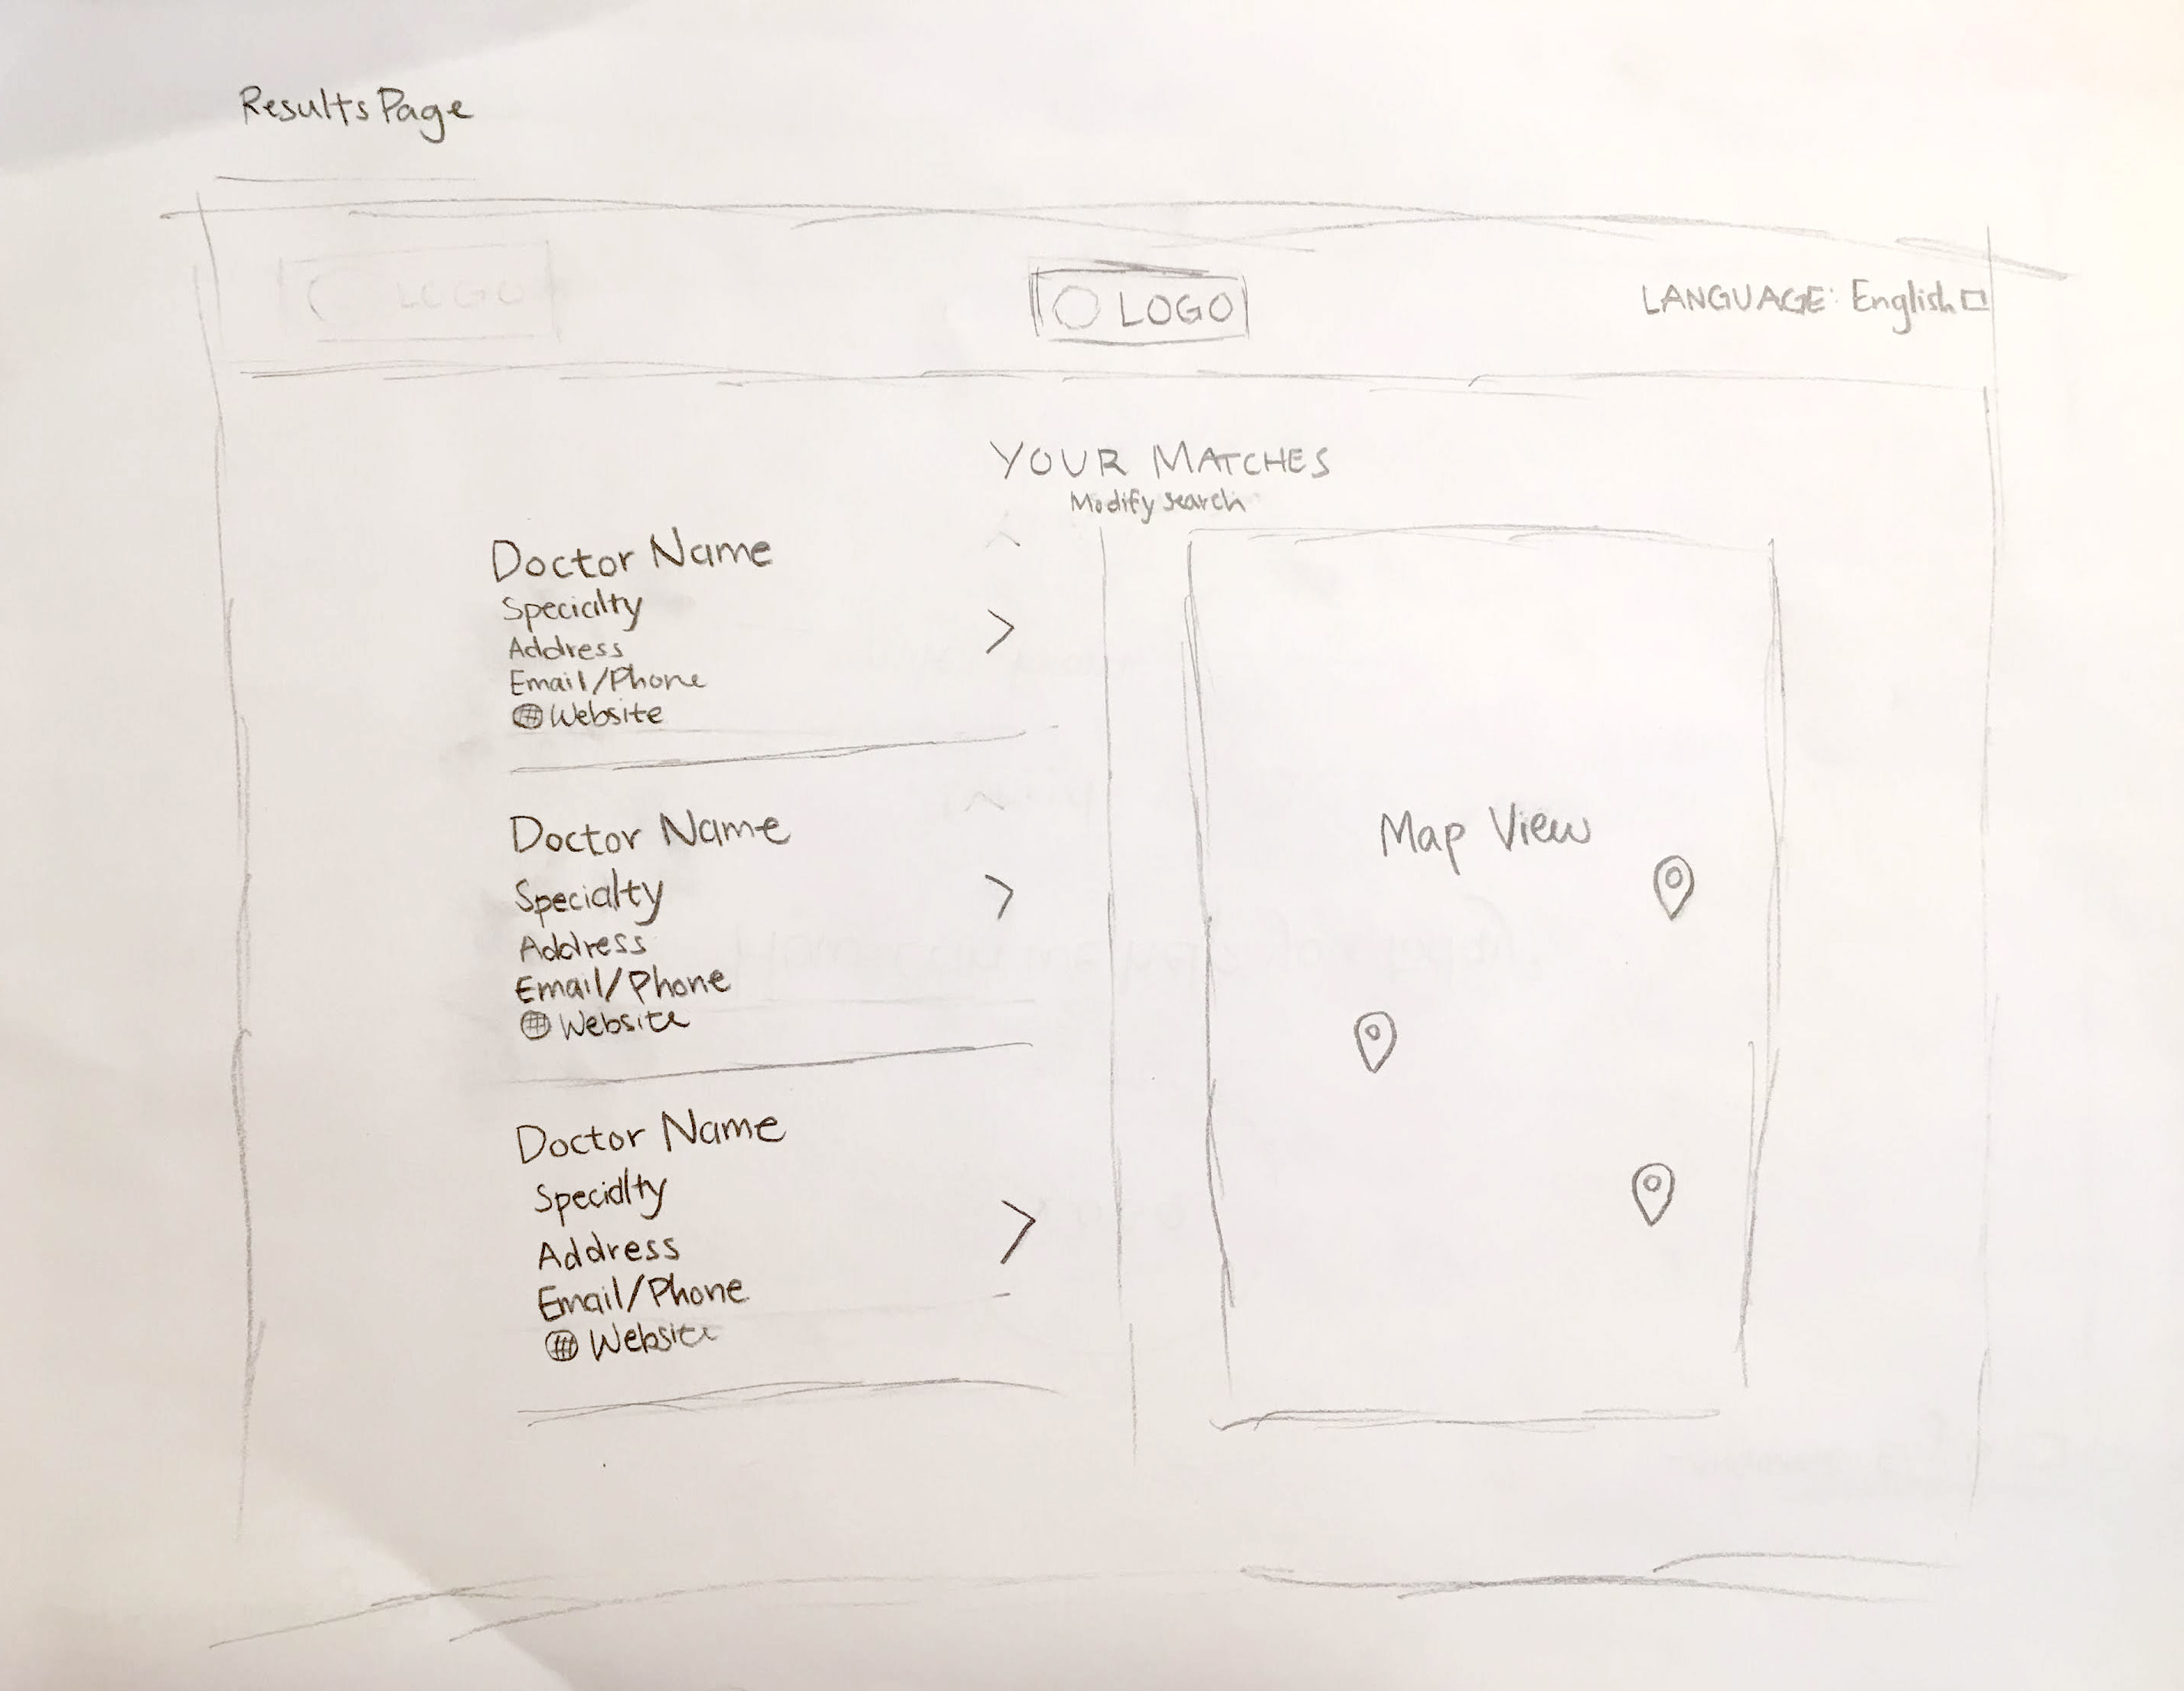 Results Page
LOGO
LOGO
LANGUAGE: English
YOUR MATCHES
Modify search
Doctor Name
Specialty
Address
Email/Phone
Website
Doctor Name
Specialty
Address
Email/Phone
Website
Doctor Name
Specialty
Address
Email/Phone
Website
Map View